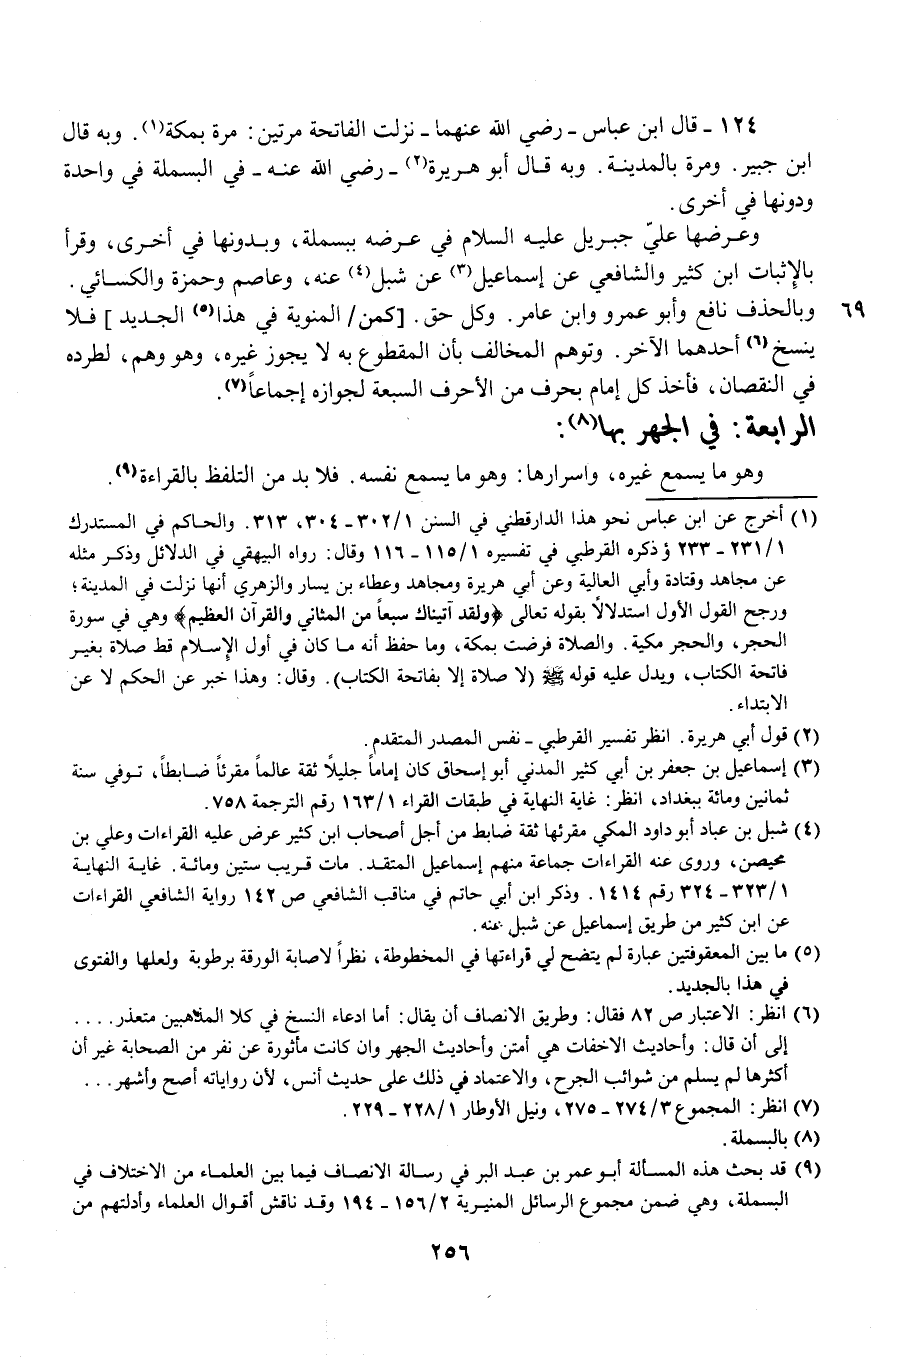 ١٢٤ ـ قال ابن عباس ـ رضي الله عنهما ـ نزلت الفاتحة مرتين: مرة بمكة(١). وبه قال
ابن جبير. ومرة بالمدينة. وبه قال أبو هريرة(٢) ـ رضي الله عنه ـ في البسملة في واحدة
ودونها في أخرى.
وعرضها عليّ جبريل عليه السلام في عرضه ببسملة، وبدونها في أخرى، وقرأ
بالإثبات ابن كثير والشافعي عن إسماعيل(٣) عن شبل(٤) عنه، وعاصم وحمزة والكسائي.
٦٩ وبالحذف نافع وأبو عمرو وابن عامر. وكل حق. [كمن/ المنوية في هذا(٥) الجديد] فلا
ينسخ(٦) أحدهما الآخر. وتوهم المخالف بأن المقطوع به لا يجوز غيره، وهو وهم، لطرده
في النقصان، فأخذ كل إمام بحرف من الأحرف السبعة لجوازه إجماعاً(٧).
الرابعة: في الجهر بها(٨):
وهو ما يسمع غيره، واسرارها: وهو ما يسمع نفسه. فلا بد من التلفظ بالقراءة(٩).
(١) أخرج عن ابن عباس نحو هذا الدارقطني في السنن ٣٠٢/١ ـ ٣٠٤، ٣١٣. والحاكم في المستدرك
٢٣١/١ ـ ٢٣٣ ؤ ذكره القرطبي في تفسيره ١١٥/١ ـ ١١٦ وقال: رواه البيهقي في الدلائل وذكر مثله
عن مجاهد وقتادة وأبي العالية وعن أبي هريرة ومجاهد وعطاء بن يسار والزهري أنها نزلت في المدينة؛
ورجح القول الأول استدلالاً بقوله تعالى ﴿ولقد آتيناك سبعاً من المثاني والقرآن العظيم﴾ وهي في سورة
الحجر، والحجر مكية. والصلاة فرضت بمكة، وما حفظ أنه ما كان في أول الإسلام قط صلاة بغير
فاتحة الكتاب، ويدل عليه قوله ﷺ (لا صلاة إلا بفاتحة الكتاب). وقال: وهذا خبر عن الحكم لا عن
الابتداء.
(٢) قول أبي هريرة. انظر تفسير القرطبي ـ نفس المصدر المتقدم.
(٣) إسماعيل بن جعفر بن أبي كثير المدني أبو إسحاق كان إماماً جليلاً ثقة عالماً مقرئاً ضابطاً، توفي سنة
ثمانين ومائة ببغداد، انظر: غاية النهاية في طبقات القراء ١٦٣/١ رقم الترجمة ٧٥٨.
(٤) شبل بن عباد أبو داود المكي مقرئها ثقة ضابط من أجل أصحاب ابن كثير عرض عليه القراءات وعلي بن
محيصن، وروى عنه القراءات جماعة منهم إسماعيل المتقد. مات قريب ستين ومائة. غاية النهاية
٣٢٣/١ ـ ٣٢٤ رقم ١٤١٤. وذكر ابن أبي حاتم في مناقب الشافعي ص ١٤٢ رواية الشافعي القراءات
عن ابن كثير من طريق إسماعيل عن شبل عنه.
(٥) ما بين المعقوفتين عبارة لم يتضح لي قراءتها في المخطوطة، نظراً لاصابة الورقة برطوبة ولعلها والفتوى
في هذا بالجديد.
(٦) انظر: الاعتبار ص ٨٢ فقال: وطريق الانصاف أن يقال: أما ادعاء النسخ في كلا المذاهبين متعذر....
إلى أن قال: وأحاديث الاخفات هي أمتن وأحاديث الجهر وان كانت مأثورة عن نفر من الصحابة غير أن
أكثرها لم يسلم من شوائب الجرح، والاعتماد في ذلك على حديث أنس، لأن رواياته أصح وأشهر...
(٧) انظر: المجموع ٢٧٤/٣ ـ ٢٧٥، ونيل الأوطار ٢٢٨/١ ـ ٢٢٩.
(٨) بالبسملة.
(٩) قد بحث هذه المسألة أبو عمر بن عبد البر في رسالة الانصاف فيما بين العلماء من الاختلاف في
البسملة، وهي ضمن مجموع الرسائل المنيرية ١٥٦/٢ ـ ١٩٤ وقد ناقش أقوال العلماء وأدلتهم من
٢٥٦